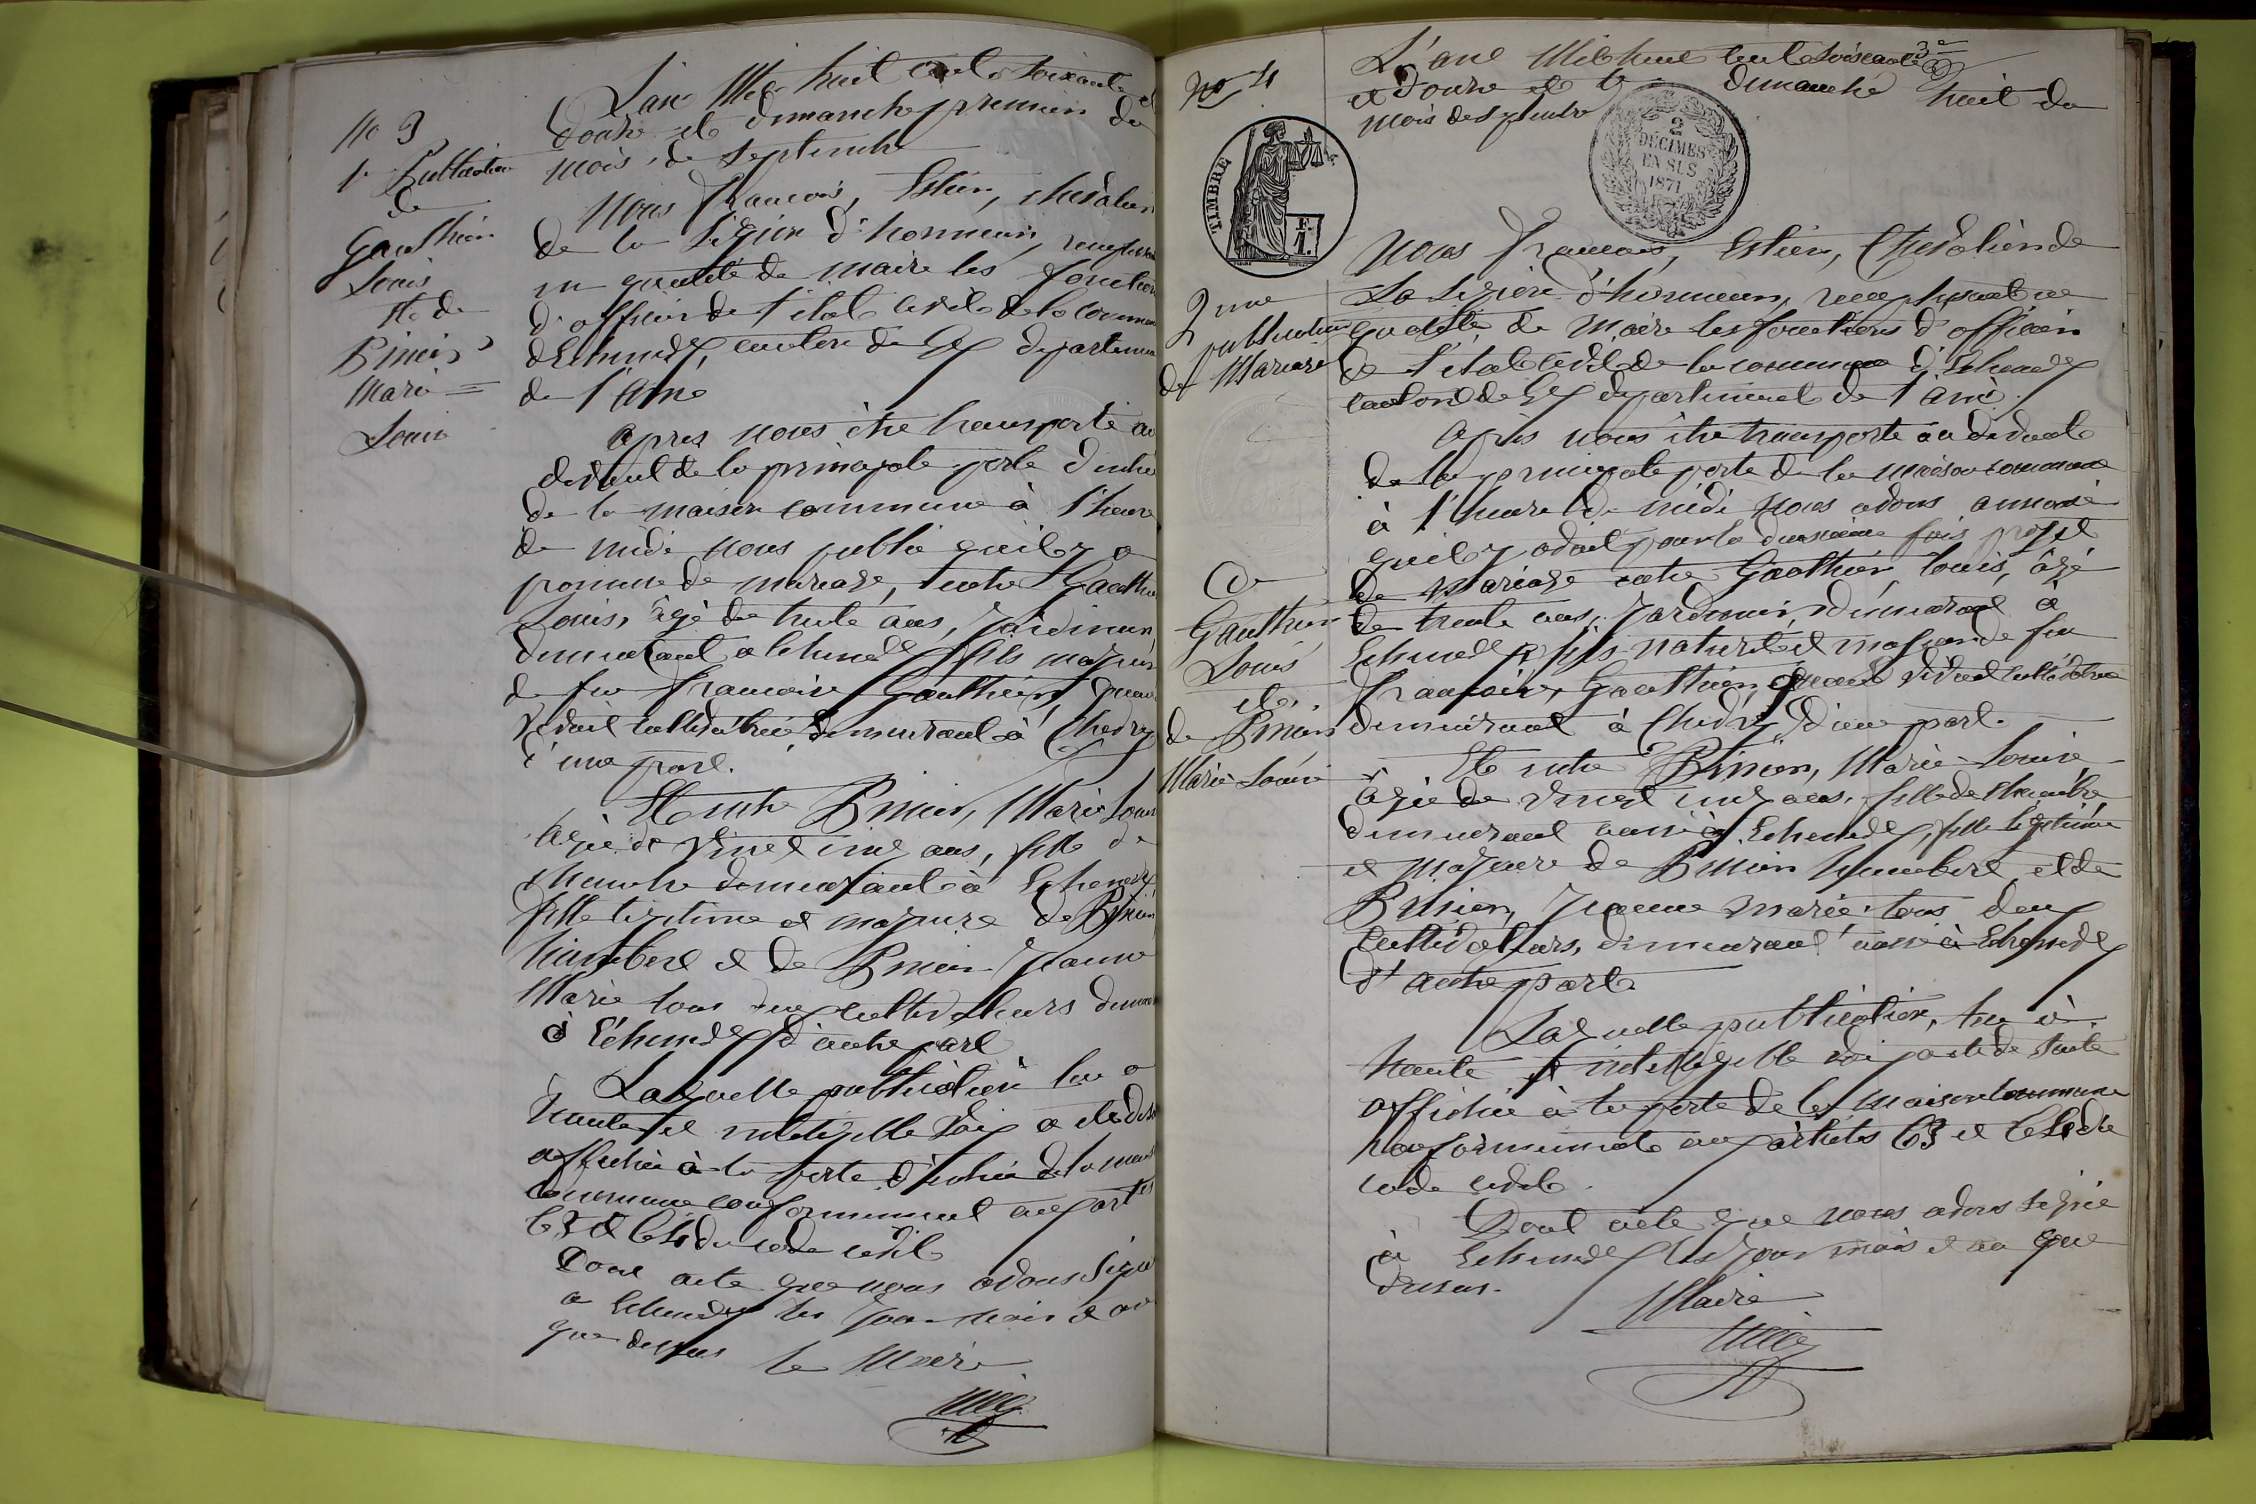 No 3
1e Publication
de
Gauthier
Louis
et de
Brisier
Marie =
Louise
L'an Mil huit cent soixante et
douze et dimanche premier du
mois de septembre
Nous François, Estier, chevalier
de la Légion d'honneur, remplissant
en qualité de maire les fonctions
d'officier de l'état civil de la commune
d'Echenevex, canton de Gex département
de l'Ain
Après nous être transporté au
devant de la principale porte d'entrée
de la maison commune à l'heure
de midi nous publié qu'il y a
promesse de mariage, entre Gauthier
Louis, âgé de trente ans, jardinier
demeurant a Echenevex fils majeur
de feu Francoise Gauthier, quand
vivait cultivatrice demeurant à Chevry
d'une part.
Et entre Brisier, Marie Louise
âgée de vingt cinq ans, fille de
chambre demeurant à Echenevex
fille légitime et majeure de Brisier
Humbert et de Brisier Jeanne
Marie tous deux cultivateurs demeurant
à Echenevex d'autre part
Laquelle publication lue a
haute et intelligible voix a été de suite
affichée à la porte d'entrée de la maison
commune conformement aux art
63 et 64 du code civil
Dont acte que nous avons signé
a Echenevex les jour mois et an
que dessus le Maire
No 4
TIMBRE
F.
1.
2me
publication
de Mariage
De
Gauthier
Louis
et
de Brisier
Marie Louise
L'ane Mil huit cent soixante
et douze et le dimanche huit du
mois de septembre
2
DÉCIMES
EN SUS
1871
Nous François, Estier, Chevalier de
La Légion d'honneur, remplissant en
qualité de Maire les fonctions d'officier
de l'état civil de la commune d'Echenevex
canton de Gex département de l'Ain.
Après nous être transporté au devant
de la principale porte de la maison commune
à l'heure de midi nous avons annoncé
qu'il y avait pour la deuxième fois projet
de Mariage entre Gauthier, Louis, âgé
de trente ans, jardinier, demeurant à
Echenevex fils naturel et majeur de feu
Françoise, Gauthier, quand vivait cultivatrice
demeurant à Chevry d'une part.
Et entre Brisier, Marie-Louise
âgée de vingt cinq ans, fille de chambre
demeurant aussi à Echenevex, fille légitime
et majeure de Brisier Humbert, et de
Brisier, Jeanne Marie tous deux
cultivateurs, demeurant aussi à Echenevex
d'autre part.
Laquelle publication, lue à
haute et intelligible voix a été de suite
affichée à la porte de la maison commune
conformement aux articles 63 et 64 du
code civil.
Dont acte que nous avons signé
à Echenevex les jour mois et an que
dessus.
Maire